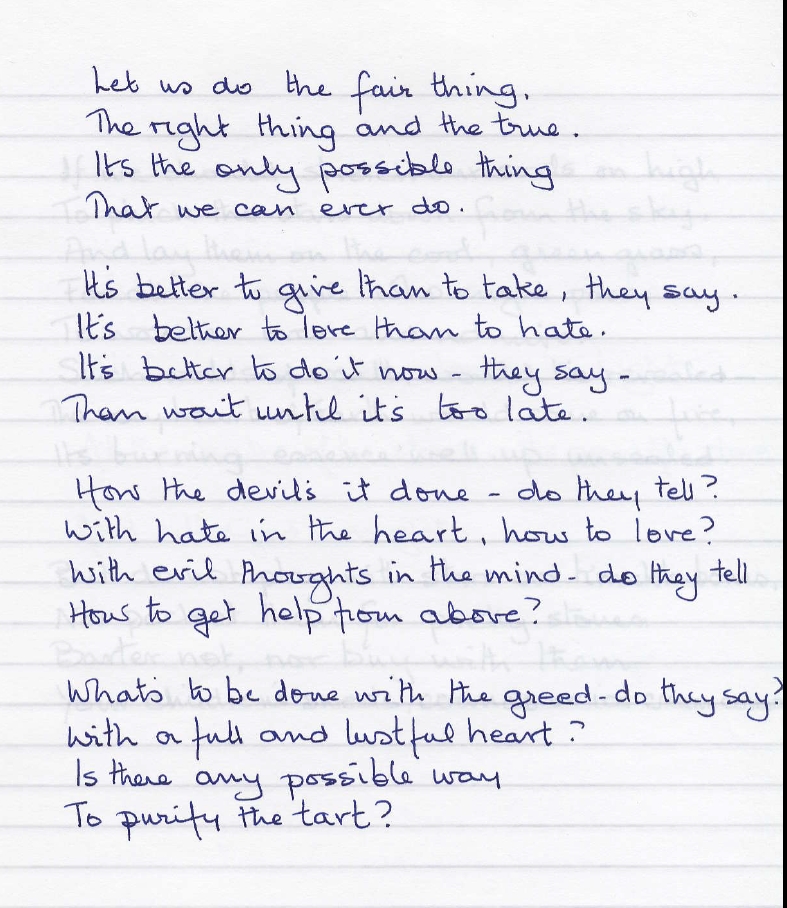 Let us do the fair thing.
The right thing and the true.
Its the only possible thing
That we can ever do.
It's better to give than to take, they say.
It's better to love than to hate.
It's better to do it now - they say -
Than wait until it's too late.
How the devil's it done - do they tell?
With hate in the heart, how to love?
With evil thoughts in the mind - do they tell
How to get help from above?
What's to be done with the greed - do they say?
With a full and lustful heart?
Is there any possible way
To purify the tart?